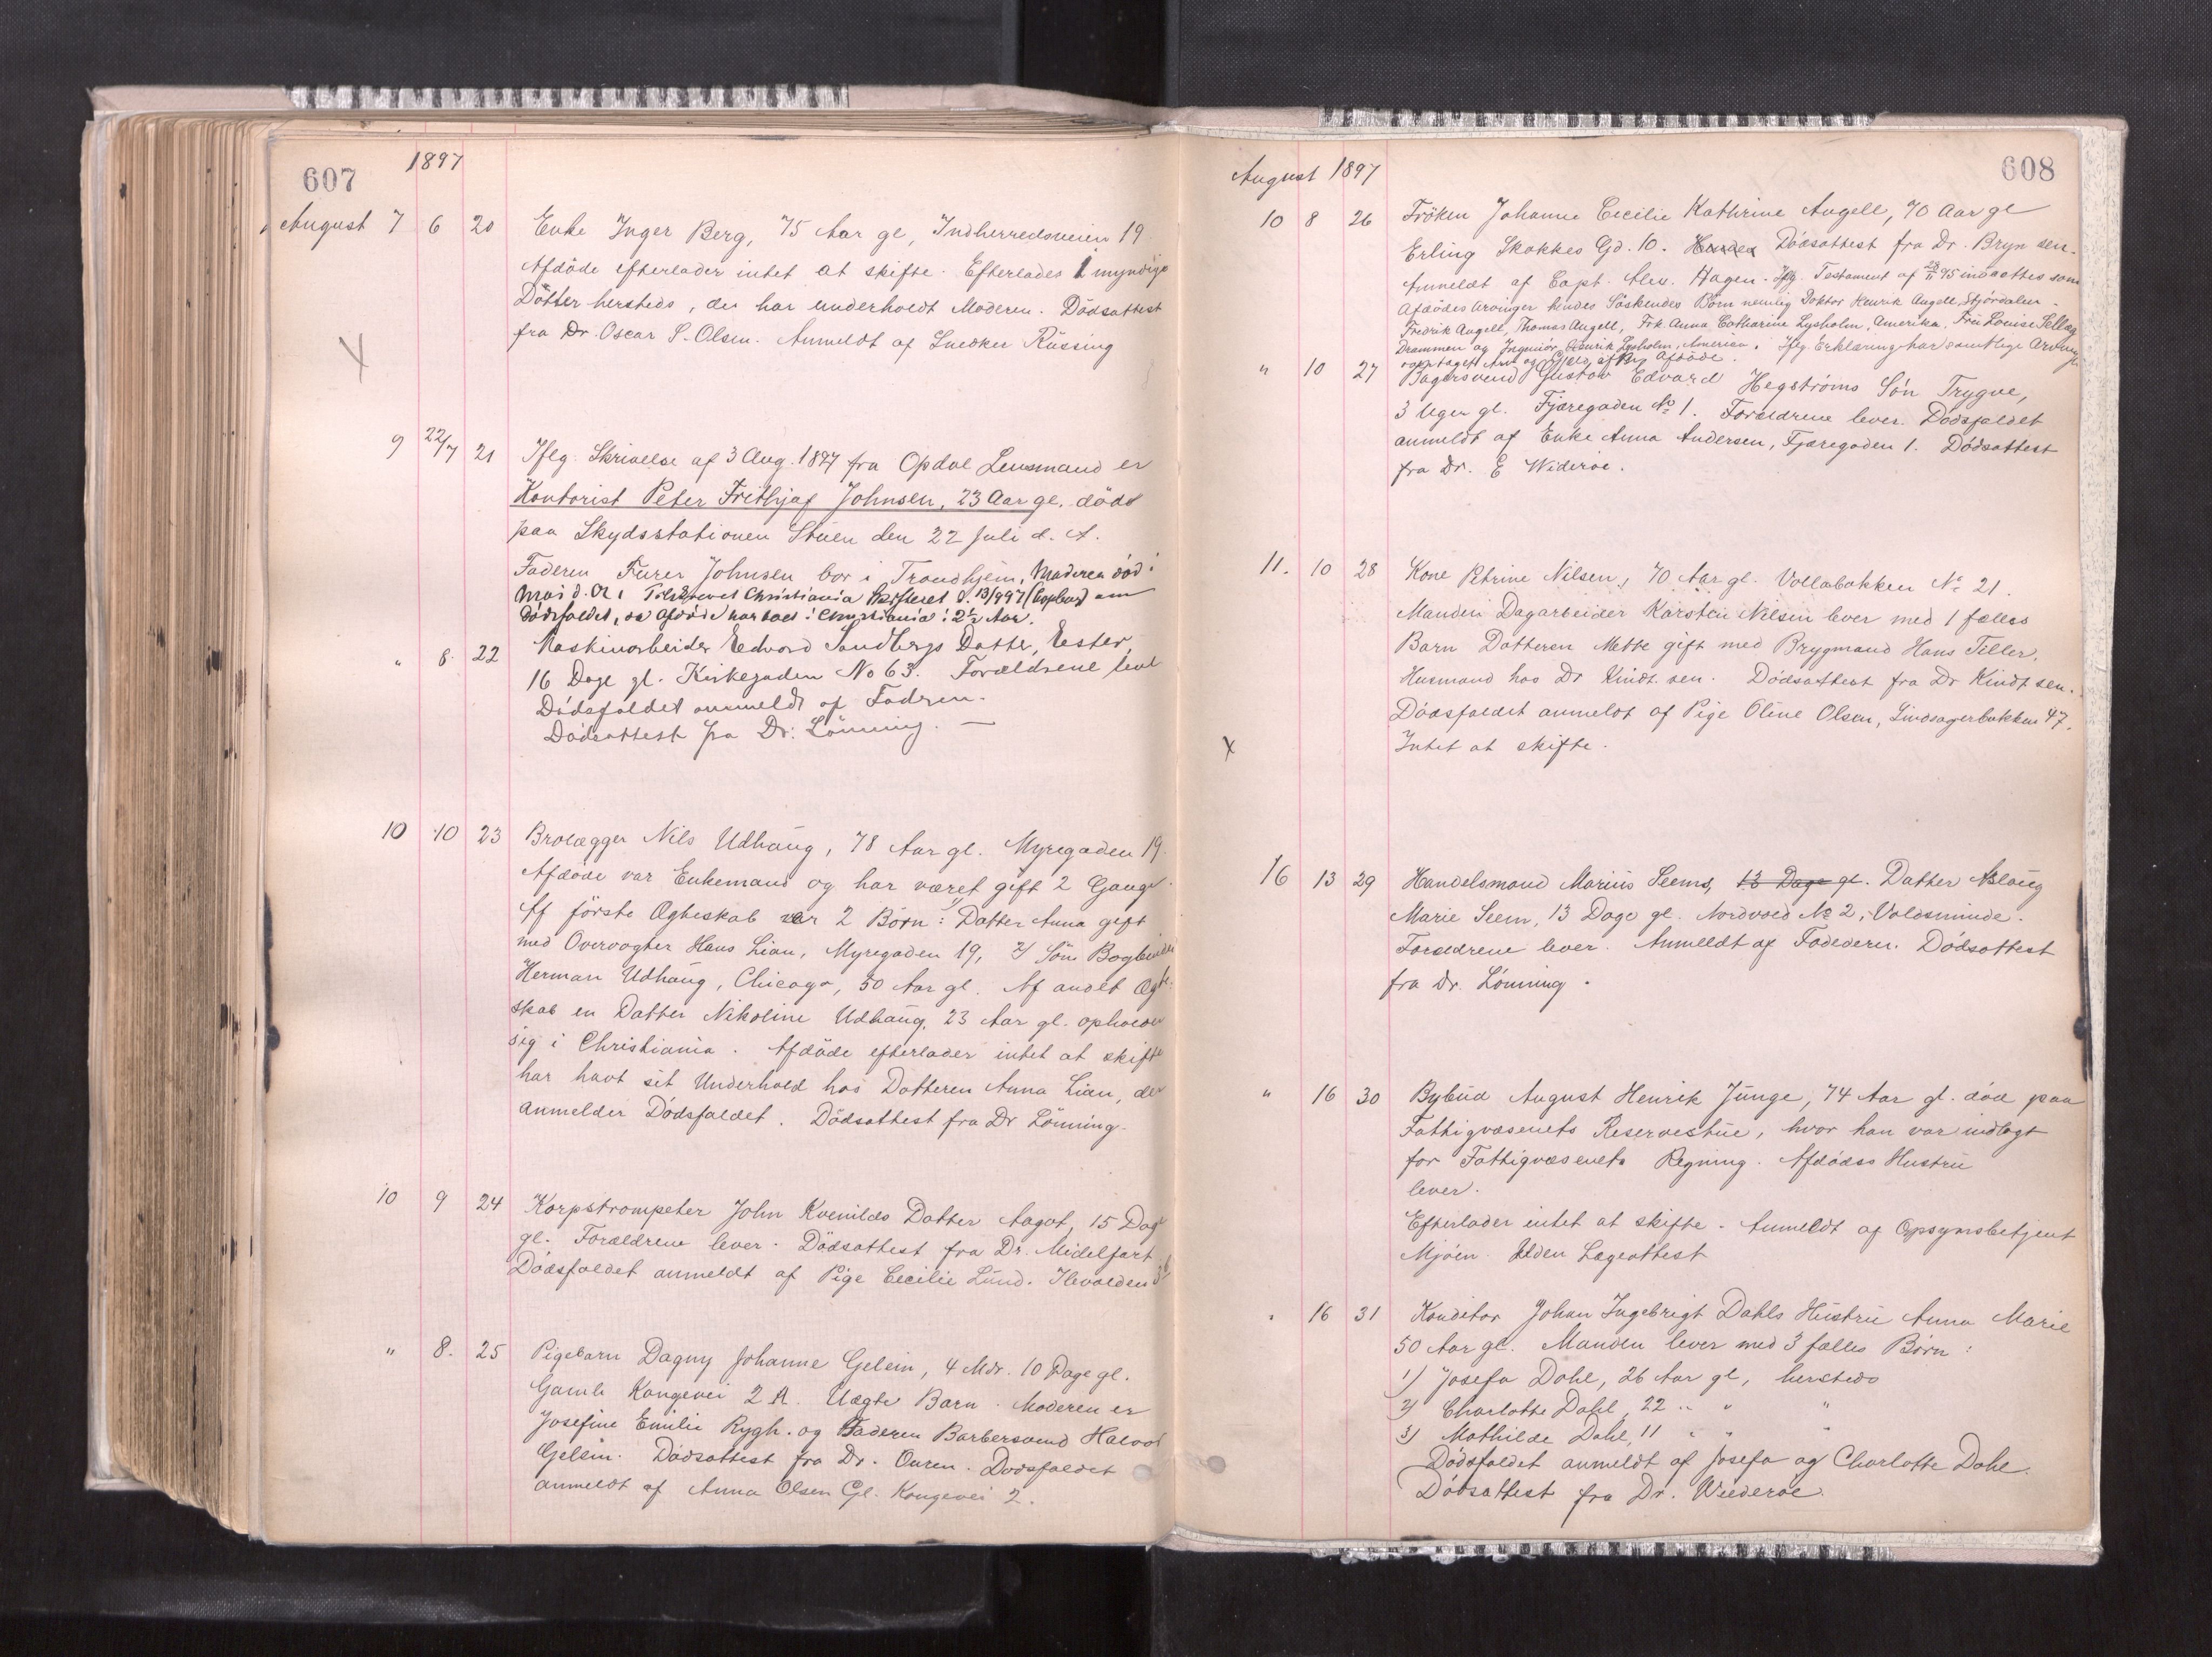 607
1897
August 7 6 20 Enke Inger Berg, 75 Aar gl, Indherredsveien 19
Afdöde efterlader intet at skifte. Efterlades 1 myndige
Dötter hersteds, der har underholdt Moderen. Dödsattest
fra Dr. Oscar S. Olsen. Anmeldt af Snedker Rüssing
X
9 22/7 21 Iflg. Skrivelse af 3 Aug. 1897 fra Opdal Lensmand er
Kontorist Peter Frithjof Johnsen, 23 Aar gl. död
paa Skydsstationen Stuen den 22 Juli d. A.
Faderen Furer Johnsen bor i Trondhjem, Moderen död i
Mai d. A. Tilskrevet Christiania Skifteret d. 13/8 97 (Kopibog) om
Dödsfaldet, da Afdöde har boet i Christiania i 2½ Aar.
" 8. 22 Maskinarbeider Edvard Sandbergs Datter, Ester,
16 Dage gl. Kirkegaden No 63. Forældrene lever
Dödsfaldet anmeldt af Fadren.
Dödsattest fra Dr. Lönning. —
10 10 23 Brolægger Nils Udhaug, 78 Aar gl. Myregaden 19.
Afdöde var Enkemand og har været gift 2 Gange.
Af förste Ægteskab var 2 Börn: 1) Datter Anna gift
med Overvogter Hans Lian, Myregaden 19, 2) Sön Bogbinder
Herman Udhaug, Chicago, 50 Aar gl. Af andet Ægte-
skab en Datter Nikoline Udhaug, 23 Aar gl. opholder
sig i Christiania. Afdöde efterlader intet at skifte
har havt sit Underhold hos Datteren Anna Lian, der
anmelder Dödsfaldet. Dödsattest fra Dr Lönning.
10 9 24 Korpstrompeter John Kvenilds Datter Aagot, 15 Dage
gl. Forældrene lever. Dödsattest fra Dr. Midelfart
Dödsfaldet anmeldt af Pige Cecilie Lund. Ilevolden
" 8. 25 Pigebarn Dagny Johanne Gelein, 4 Mdr. 10 Dage gl.
Gamle Kongevei 2 A. Uægte Barn. Moderen er
Josefine Emilie Rygh. og Faderen Barbersvend Halvor
Gelein. Dödsattest fra Dr. Ouren. Dodsfaldet
anmeldt af Anna Olsen Gl. Kongevei 2.
608
August 1897
10 8 26 Fröken Johanne Cecilie Kathrine Angell, 70 Aar gl
Erling Skakkes Gd. 10. Dödsattest fra Dr. Bryn sen.
Anmeldt af Capt. Alex. Hagen. Iflg. Testament af 28/11 95 indsættes som
Afdödes Arvinger hendes Söskendes Börn nemlig Doktor Henrik Angell, Stjördalen
Fredrik Angell, Thomas Angell, Frk Anna Catharine Lysholm, Amerika, Fru Louise
Drammen og Ingeniör Henrik Lysholm, America. Iflg Erklæring har samtlige Arvinger
overtaget Arv og Gjæld af Afdöde.
" 10 27 Bagersvend Gustav Edvard Hegströms Sön Trygve,
3 Uger gl. Fjæregaden No 1. Forældrene lever. Dödsfaldet
anmeldt af Enke Anna Andersen, Fjæregaden 1. Dödsattest
fra Dr. E Wideröe.
11. 10 28 Kone Petrine Nilsen, 70 Aar gl. Vollabakken No 21.
Manden Dagarbeider Karsten Nilsen lever med 1 fælles
Barn Datteren Mette gift med Brygmand Hans Tiller.
Husmand hos Dr Kindt sen. Dödsattest fra Dr Kindt sen.
Dödsfaldet anmeldt af Pige Oline Olsen, Sindsagerbakken 47.
X Intet at skifte.
16 13 29 Handelsmand Marius Seems, 13 Dage gl. Datter Aslaug
Marie Seem, 13 Dage gl. Nordvold No 2, Voldsminde.
Forældrene lever. Anmeldt af Fadederen. Dödsattest
fra Dr. Lönning.
" 16 30 Bybud August Henrik Junge, 74 Aar gl. död paa
Fattigvæsenets Reservestue, hvor han var indlagt
for Fattigvæsenets Regning. Afdödes Hustru
lever.
Efterlader intet at skifte. Anmeldt af Opsynsbetjent
Mjöen. Uden Lægeattest
" 16 31 Konditor Johan Ingebrigt Dahls Hustru Anna Marie
50 Aar gl. Manden lever med 3 fælles Börn:
1) Josefa Dahl, 26 Aar gl, hersteds
2) Charlotte Dahl, 22 " " "
3) Mathilde Dahl, 11 " " "
Dödsfaldet anmeldt af Josefa og Charlotte Dahl.
Dödsattest fra Dr. Wideröe.